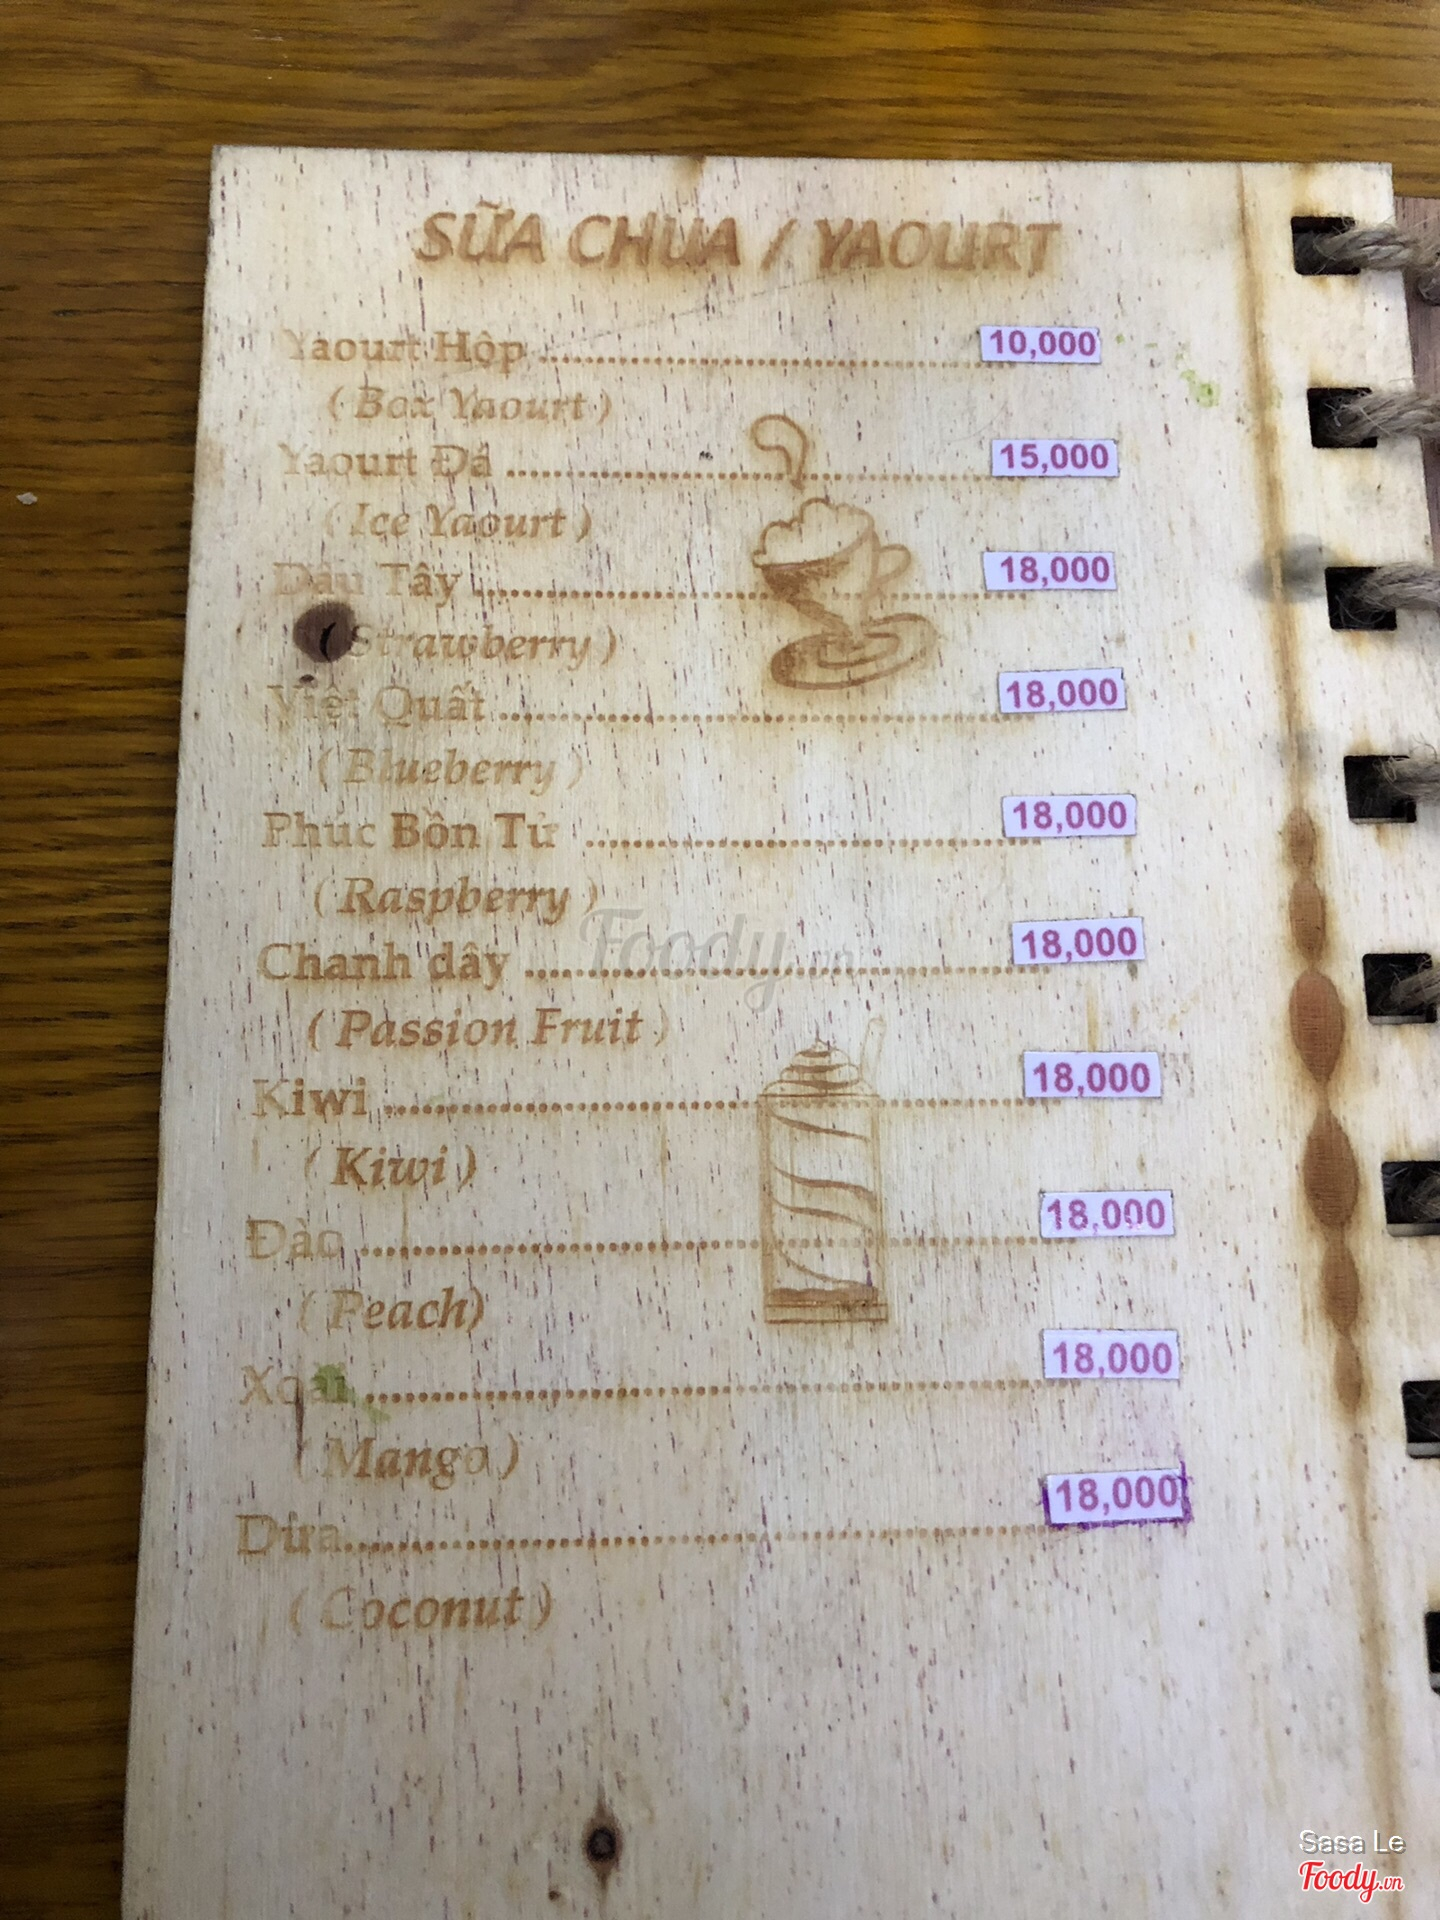 SỮA CHUA / YAOURT
Yaourt Hộp ........ 10,000
( Box Yaourt )
Yaourt Đá ........ 15,000
( Ice Yaourt )
Dâu Tây ........ 18,000
( Strawberry )
Việt Quất ........ 18,000
( Blueberry )
Phúc Bồn Tử ........ 18,000
( Raspberry )
Foody.vn
Chanh dây ........ 18,000
( Passion Fruit )
Kiwi ........ 18,000
( Kiwi )
Đào ........ 18,000
( Peach)
Xoài ........ 18,000
( Mango )
Dừa ........ 18,000
( Coconut )
Sasa Le
Foody.vn